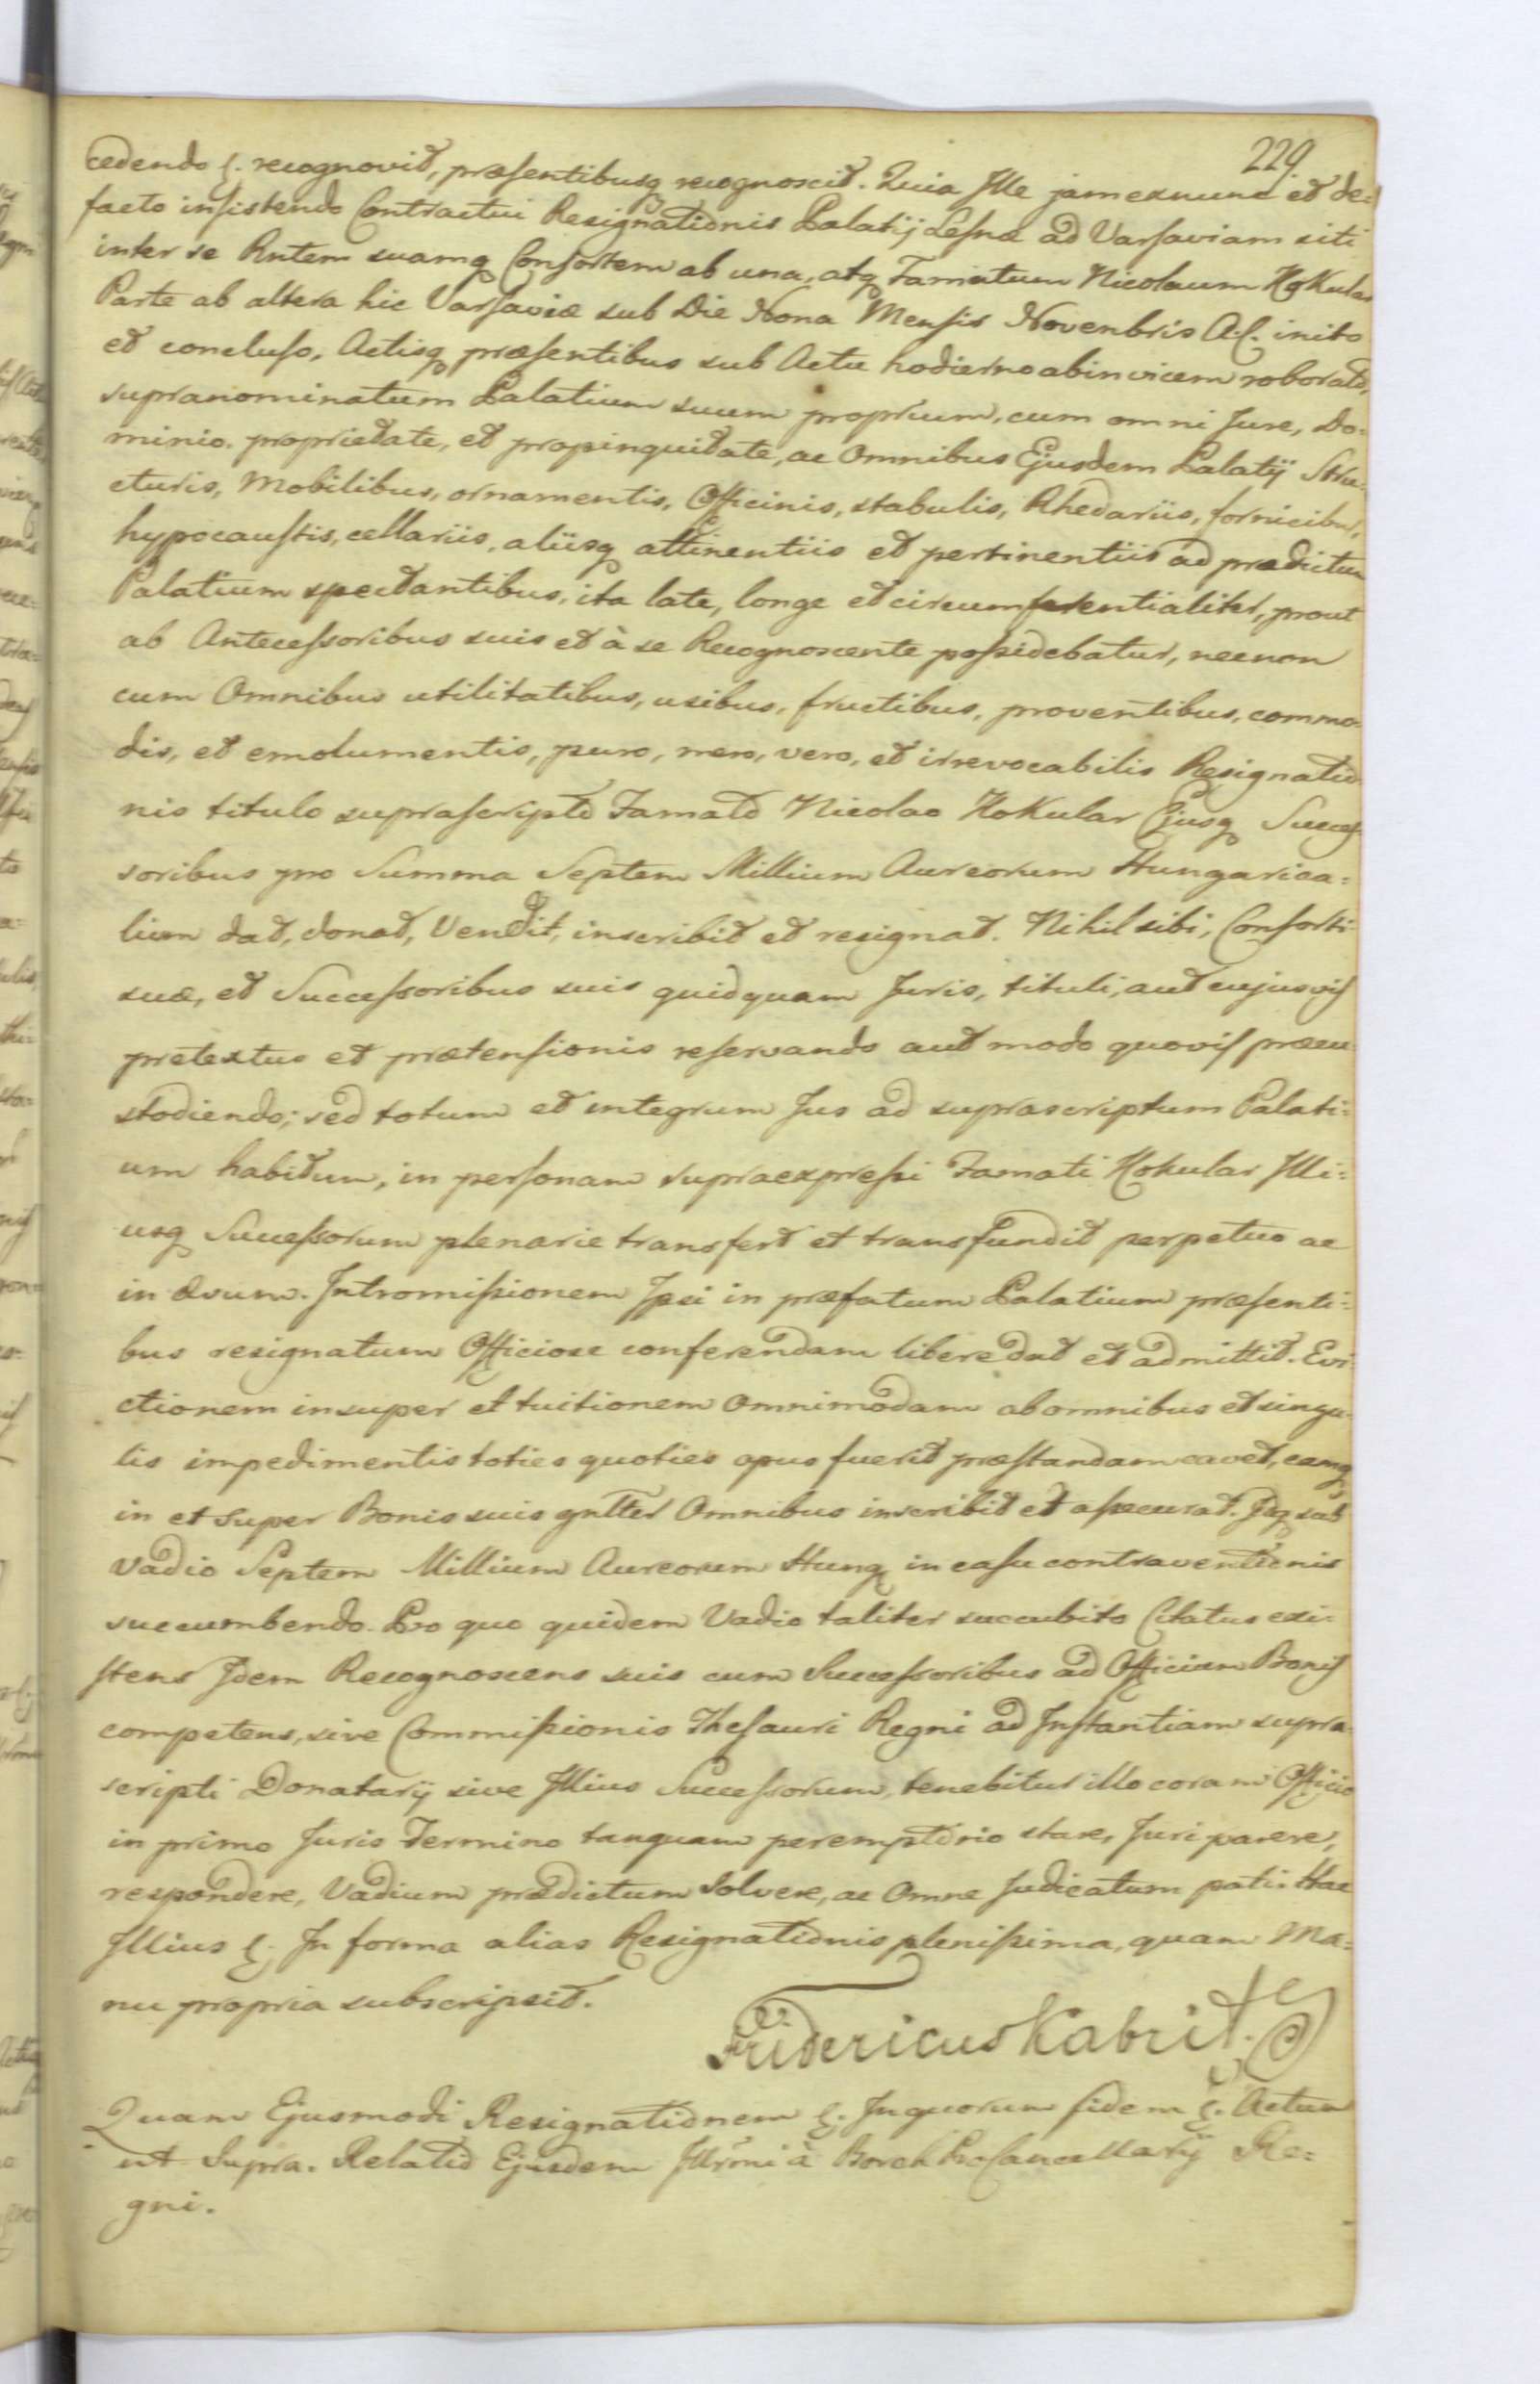 229
cedendo ξ. recognovit, præsentibusq recognoscit. Quia Ille jamexnunc et de=
facto insistendo Contractui Resignationis Palatij Lesnæ ad Varsaviam siti
inter se Rntem suamq Consortem ab una, atq Famatum Nicolaum Hokular
Parte ab altera hic Varsaviæ sub Die Nona Mensis Novenbris A.C. inito
et concluso, Actisq præsentibus sub Actu hodierno abinvicem roborato,
supranominatum Palatium suum proprium, cum omni Jure, Do=
minio, proprietate, et propinquitate, ac Omnibus Ejusdem Palatij Stru=
cturis, Mobilibus, ornamentis, Officinis, stabulis, Rhedariis, fornicibus,
hypocaustis, cellariis, aliisq attinentiis et pertinentiis ad prædictum
Palatium spectantibus, ita late, longe et circumferentialiter, prout
ab Antecessoribus suis et à se Recognoscente possidebatur, necnon
cum Omnibus utilitatibus, usibus, fructibus, proventibus, commo=
dis, et emolumentis, puro, mero, vero, et irrevocabilis Resignatio=
nis titulo suprascripto Famato Nicolao Hokular Ejusq Succes=
soribus pro Summa Septem Millium Aureorum Hungarica=
lium dat, donat, Vendit, inscribit et resignat. Nihil sibi, Consorti=
suæ, et Successoribus suis quidquam Juris, tituli, aut cujusvis
pretextus et prætensionis reservando aut modo quovis præcu
stodiendo; sed totum et integrum Jus ad suprascriptum Palati=
um habitum, in personam supraexpressi Famati Hokular Illi=
usq Successorum plenarie transfert et transfundit perpetuo ac
in ævum. Intromissionem Ipsi in præfatum Palatium præsenti=
bus resignatum Officiose conferendam libere dat et admittit. Evi
ctionem insuper et tuitionem Omnimodam ab omnibus et singu=
lis impedimentis toties quoties opus fuerit præstandam cavet, eamq
in et super Bonis suis gnlter Omnibus inscribit et assecurat. Idq sub
vadio Septem Millium Aureorum Hung in casu contraventionis
succumbendo. Pro quo quidem Vadio taliter succubito Citatus exi=
stens Idem Recognoscens suis cum Successoribus ad Officium Bonis
competens, sive Commissionis Thesauri Regni ad Instantiam supra
scripti Donatarij sive Illius Successorum, tenebitur illo coram Officio
in primo Juris Termino tanquam peremptorio stare, Juri parere,
respondere, Vadium prædictum solvere, ac Omne Judicatum pati. Hac
Illius ξ. In forma alias Resignationis plenissima, quam Ma=
nu propria subscripsit.
Fridericus Kabrit.
Quam Ejusmodi Resignationem ξ. Inquorum fidem ξ. Actum
ut Supra. Relatio Ejusdem Illrmi à Borch ProCancellarij Re=
gni.